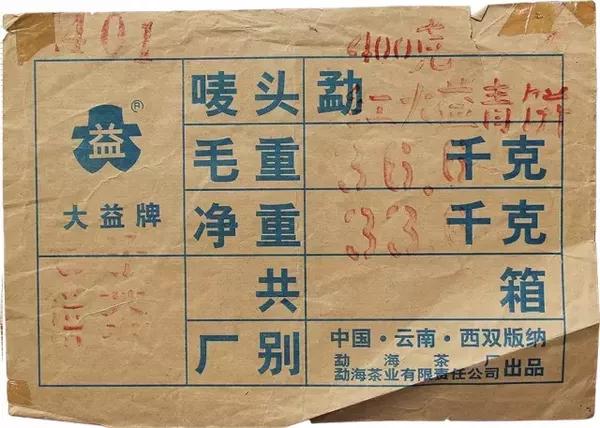 401
400克
红大益青饼
益®
大益牌
唛头 勐
毛重 36.6 千克
净重 33. 千克
共 箱
厂别
中国·云南·西双版纳
勐海茶厂
勐海茶业有限责任公司 出品